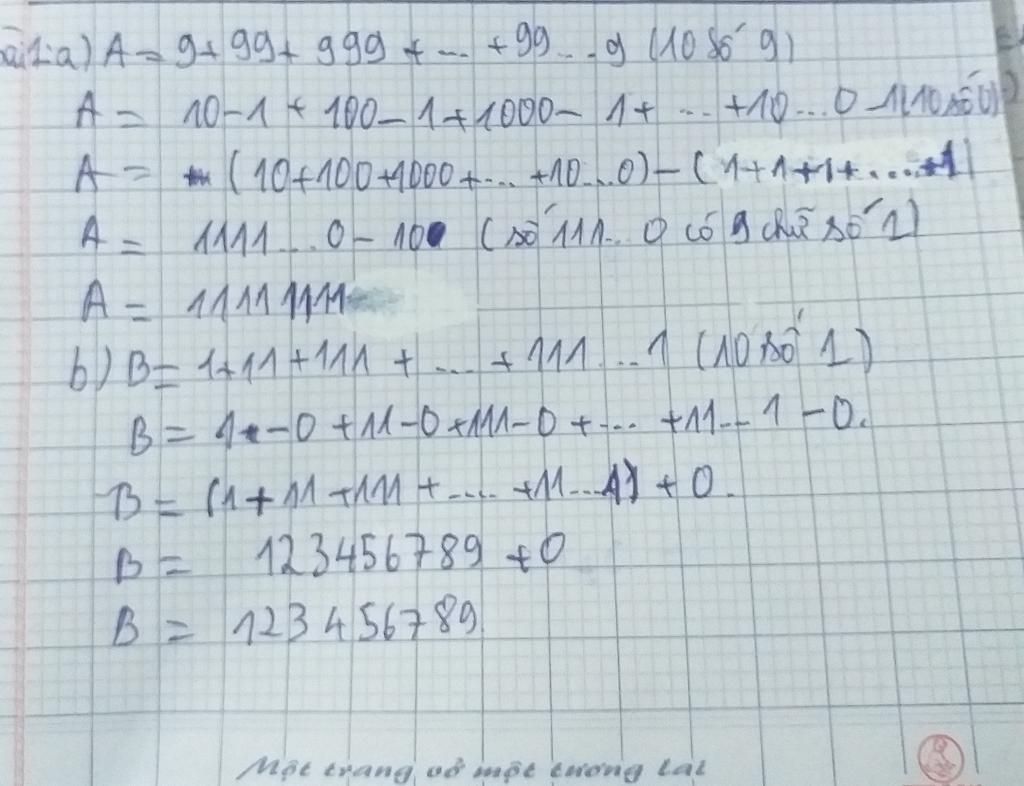 bài 1: a) A = 9 + 99 + 999 + ... + 99...9 (10 số 9)
A = 10 - 1 + 100 - 1 + 1000 - 1 + ... + 10...0 - 1 (10 số 0)
A = (10 + 100 + 1000 + ... + 10...0) - (1 + 1 + 1 + .... + 1)
A = 1111...0 - 10 (số 111...0 có 9 chữ số 1)
A = 11111111
b) B = 1 + 11 + 111 + .... + 111...1 (10 số 1)
B = 1 - 0 + 11 - 0 + 111 - 0 + ... + 11...1 - 0.
B = (1 + 11 + 111 + .... + 11...1) + 0.
B = 123456789 + 0
B = 123456789
Một trang vở một tương lai